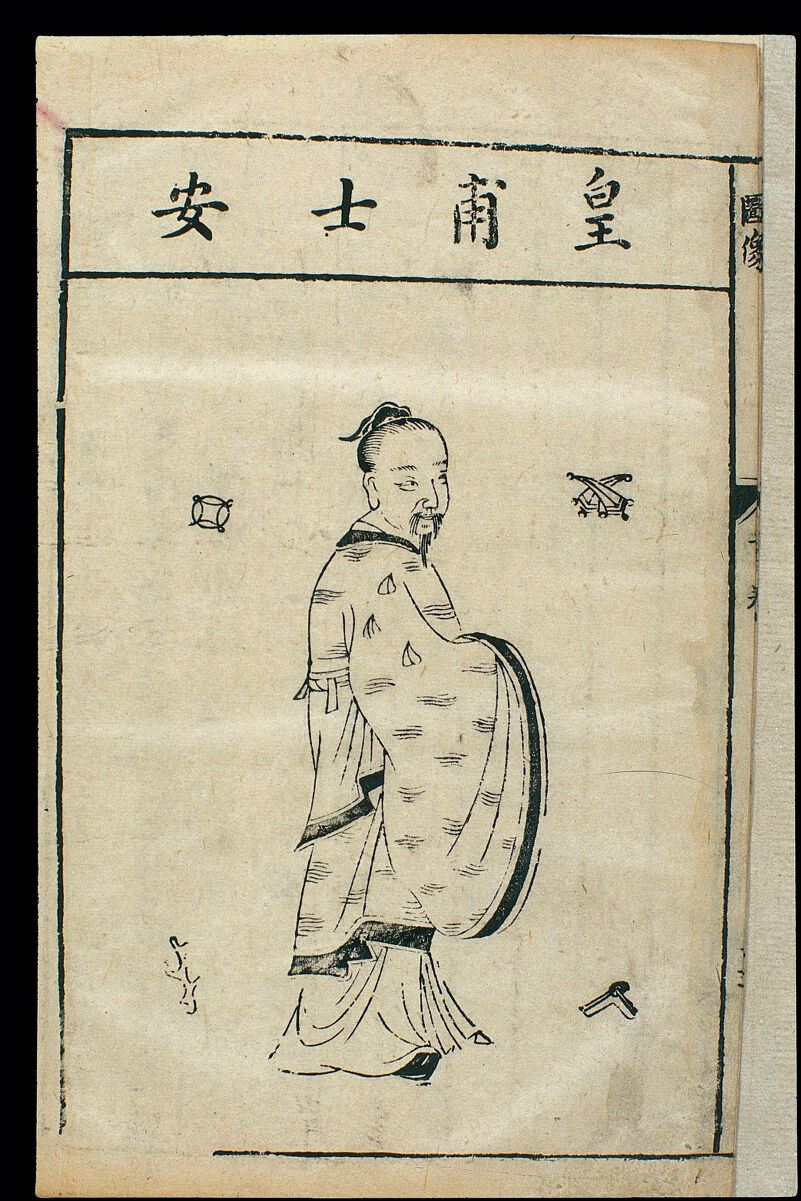 皇甫士安
圖像